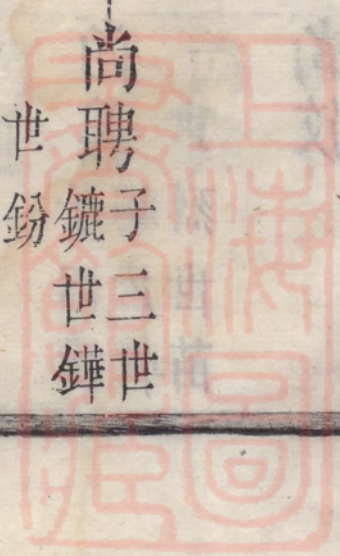 尚聘子三世
鏕世鏵
世鈖